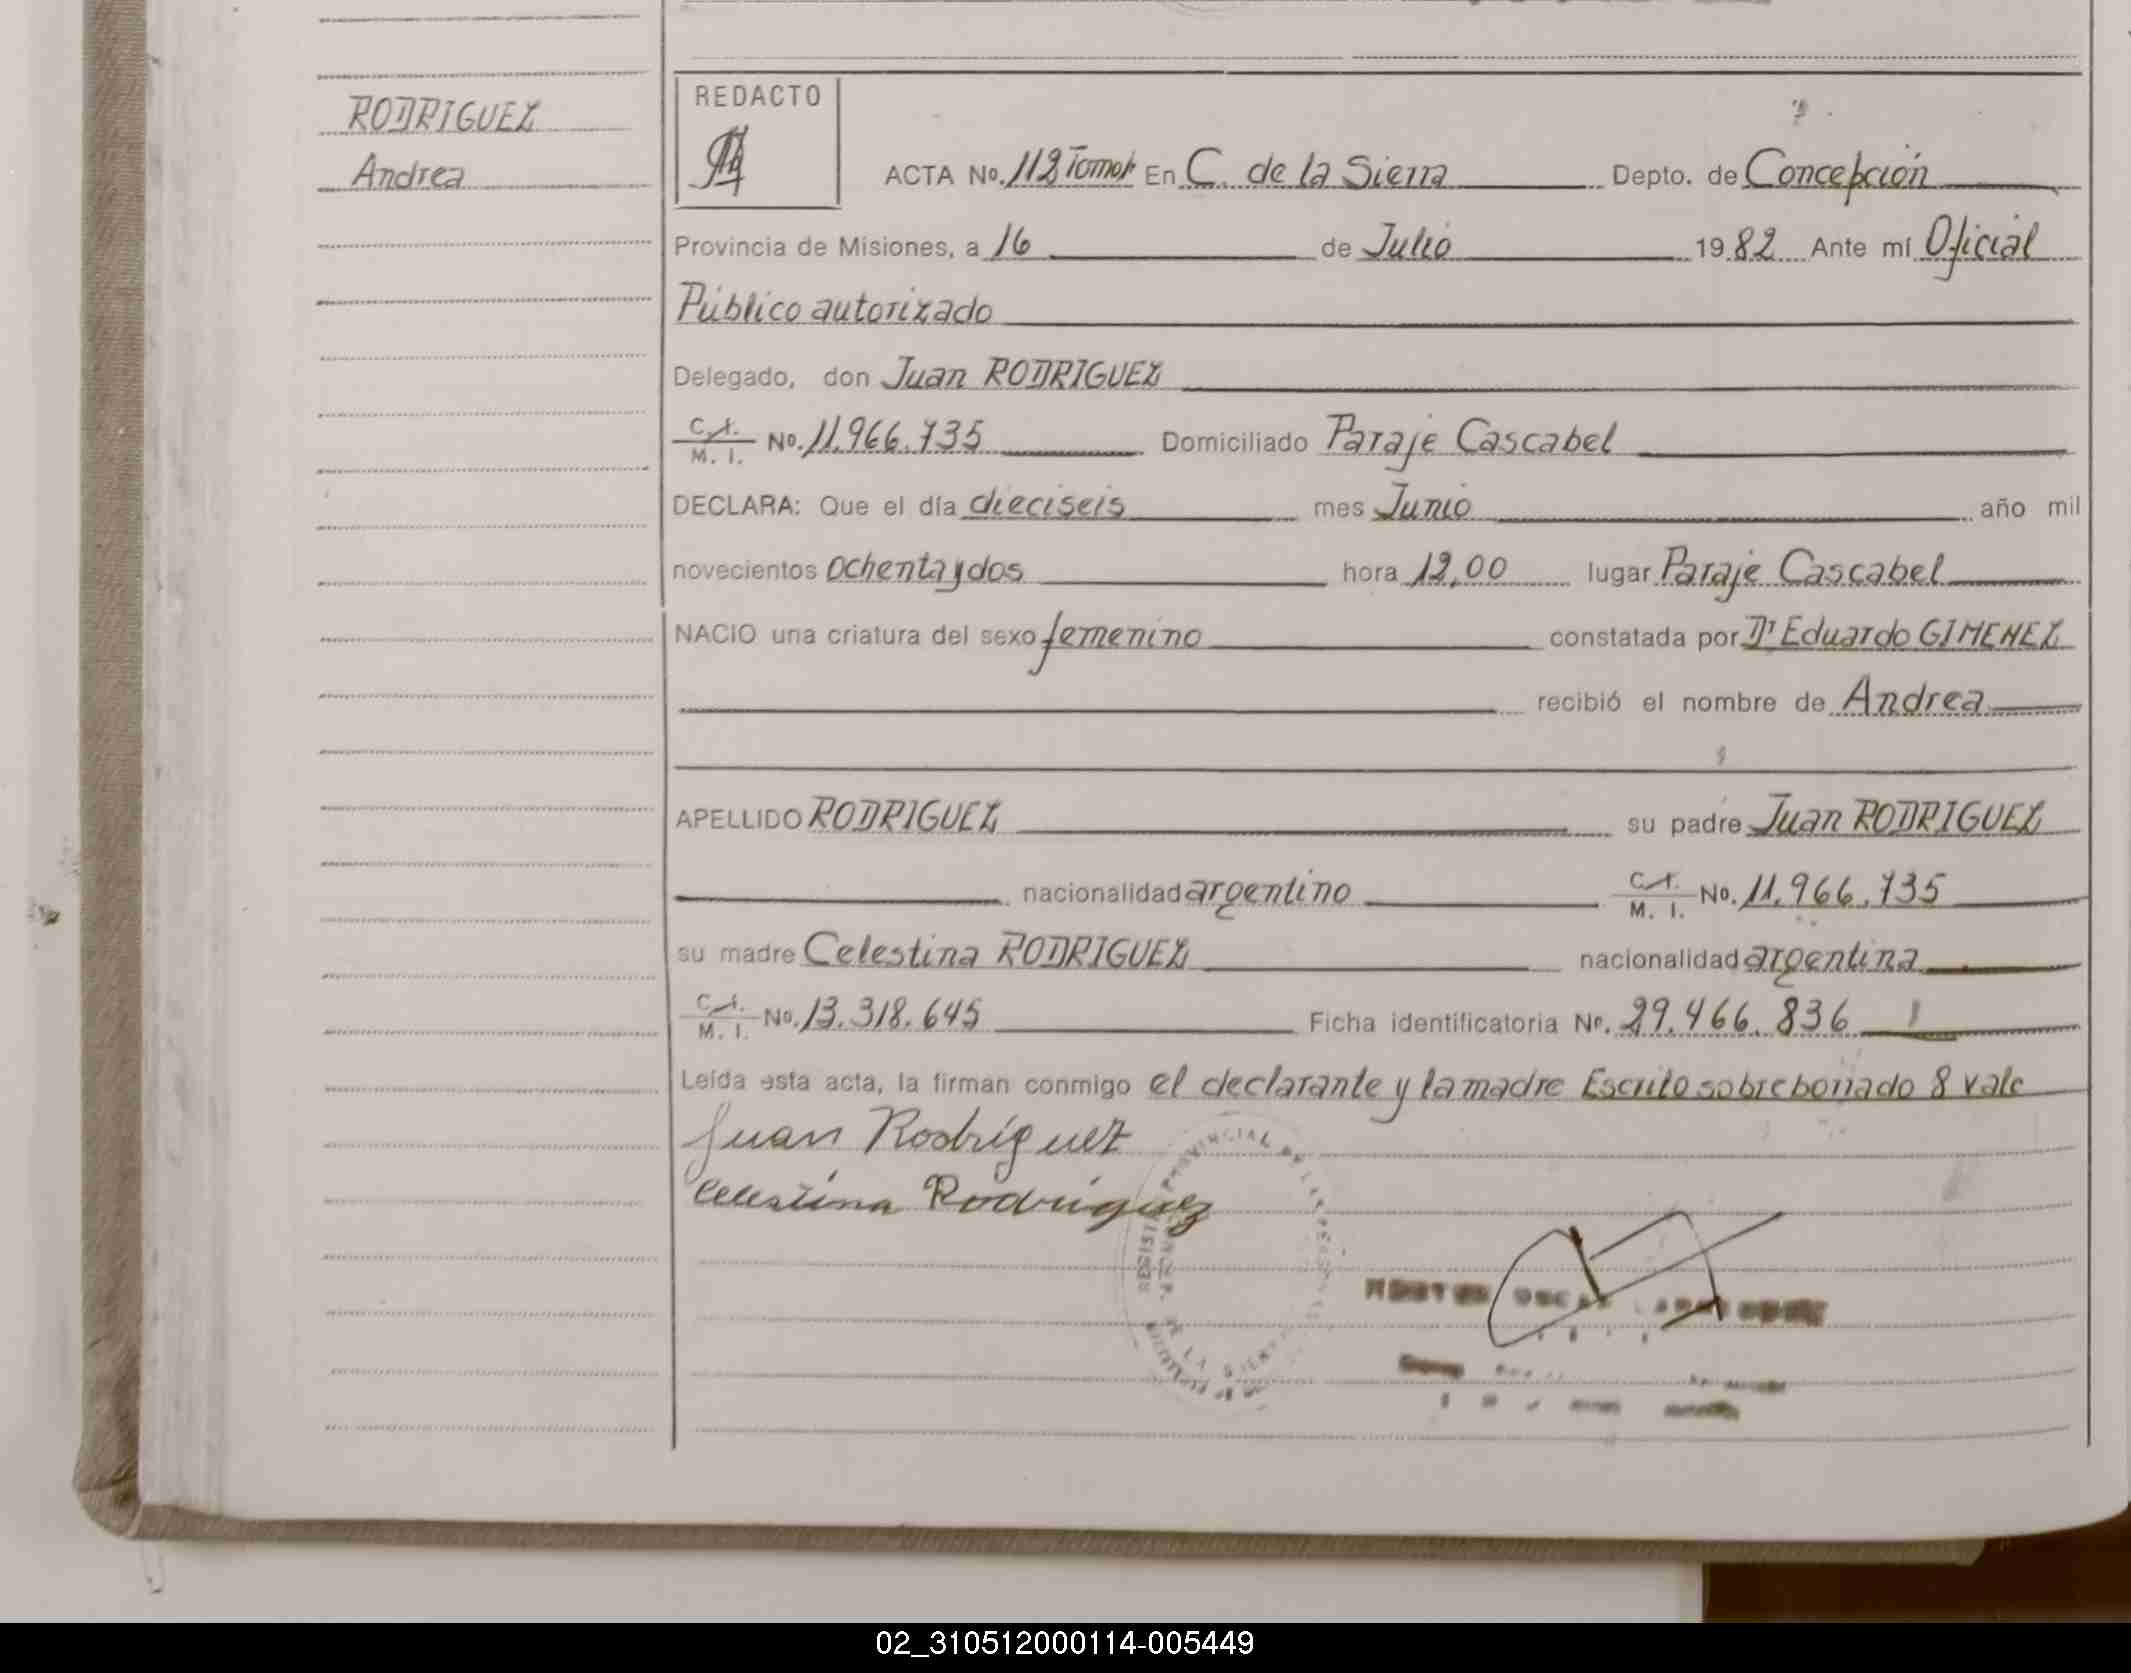 RODRIGUEZ
Andrea
REDACTO
ACTA No. 112 Tomo I En C. de la Sierra Depto. de Concepción
Provincia de Misiones, a 16 de Julio 1982 Ante mí Oficial
Público autorizado
Delegado, don Juan RODRIGUEZ
C. I. M. I. No. 11.966.735 Domiciliado Paraje Cascabel
DECLARA: Que el día dieciseis mes Junio año mil
novecientos ochenta y dos hora 12,00 lugar Paraje Cascabel
NACIO una criatura del sexo femenino constatada por Dr Eduardo GIMENEZ
recibió el nombre de Andrea
APELLIDO RODRIGUEZ su padre Juan RODRIGUEZ
nacionalidad argentino C. I. M. I. No. 11.966.735
su madre Celestina RODRIGUEZ nacionalidad argentina
C. I. M. I. No. 13.318.645 Ficha identificatoria Nº. 29.466.836
Leída esta acta, la firman conmigo el declarante y la madre Escrito sobreborrado 8 vale
Juan Rodríguez
Celestina Rodríguez
OSCAR
02_310512000114-005449